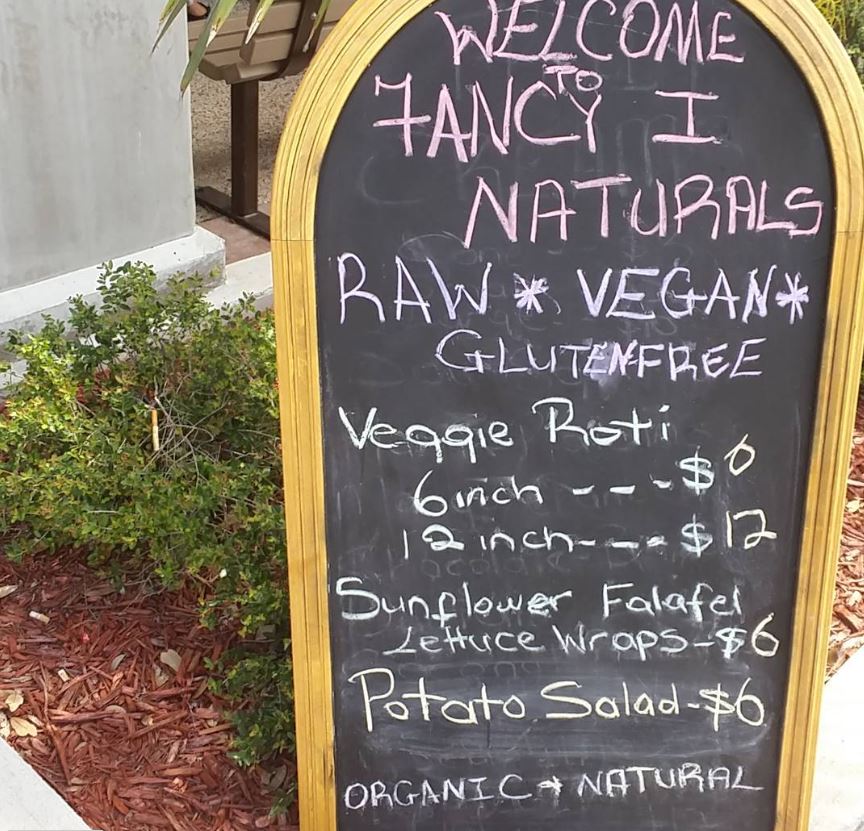 WELCOME
TO
FANCY I
NATURALS
RAW * VEGAN *
GLUTENFREE
Veggie Roti
6 inch - - - $6
12 inch - - - $12
Sunflower Falafel
Lettuce Wraps - $6
Potato Salad - $6
ORGANIC * NATURAL